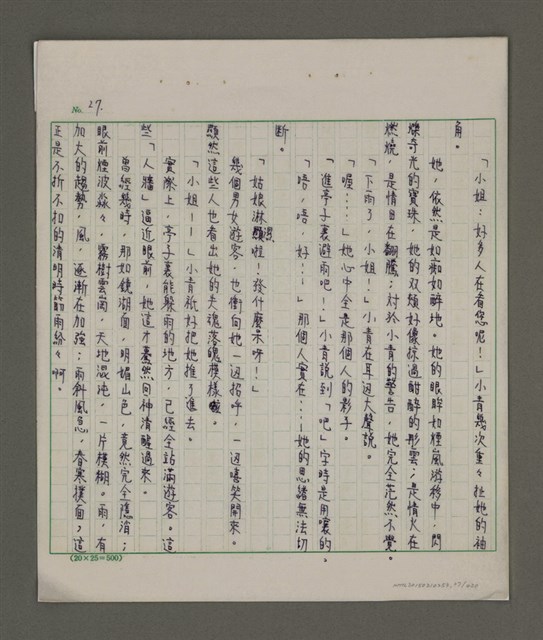 No. 27.
「小姐:好多人在看您呢!」小青幾次重々扯她的袖
角。
她,依然是如痴如醉地。她的眼眸如煙嵐游移中,閃
爍奇光的寶珠,她的双頰好像掠過酣醉的彤雲;是情火在
燃燒,是情目在翻騰;対於小青的警告,她完全茫然不覺。
「下雨了,小姐!」小青在耳边大聲説。
「喔……」她心中全是那個人的影子。
「進亭子裏避雨吧!」小青説到「吧」字時是用嚷的。
「唔,唔,好!—」那個人實在……—她的思緒無法切
断。
「姑娘淋濕啦!發什麼呆呀!」
幾個男女遊客,也衝向她一边招呼,一边嘻笑開來。
顯然這些人也看出她的失魂落魄模樣。
「小姐——」小青祇好把她推了進去。
實際上,亭子裏能躲雨的地方,已經全站滿遊客。這
些「人牆」逼近眼前,她這才驀然回神清醒過來。
曾經幾時,那如鏡湖面,明媚山色,竟然完全隱消;
眼前煙波淼々,霧樹雲崗,天地混沌,一片模糊。雨,有
加大的趨勢,風,逐漸在加強;雨斜風急,春寒撲面;這
正是不折不扣的清明時節雨紛々啊。
(20×25=500)